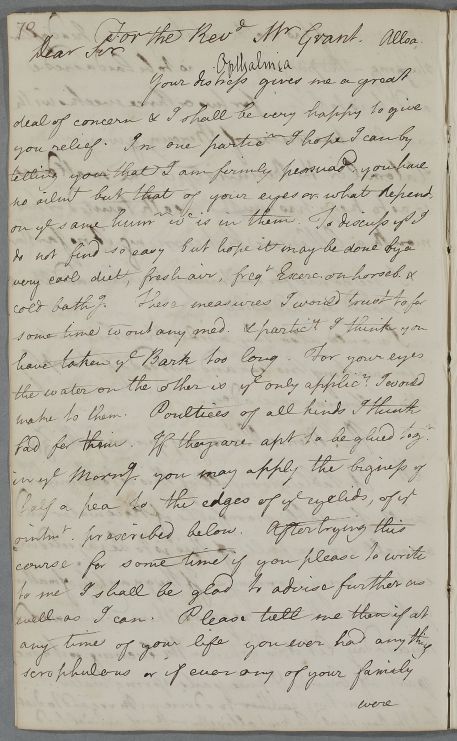 70
For the Revd Mr Grant. Alloa.
Dear Sir
Opthalmia
Your distress gives me a great
deal of concern & I shall be very happy to give
you relief. In one particr I hope I can by
telling you that I am firmly persuadd you have
no ailmt but that of your eyes or what depends
on ye same humr wc is in them. To discuss yt I
do not find so easy but hope it may be done by a
very cool diet, fresh air, freqt Exerc. on horseb. &
cold bathg. These measures I would trust to for
some time wout any med. & particly I think you
have taken ye Bark too long. For your eyes
the water on the other is ye only applicn I would
make to them. Poultices of all kinds I think
bad for them. If they are apt to be glued togr
in ye Morng. you may apply the bigness of
half a pea to the edges of yr eyelids, of ye
ointmt prescribed below. After trying this
course for some time if you please to write
to me I shall be glad to advise further as
well as I can. Please tell me then if at
any time of your life you ever had anything
scrophulous or if ever any of your family
were